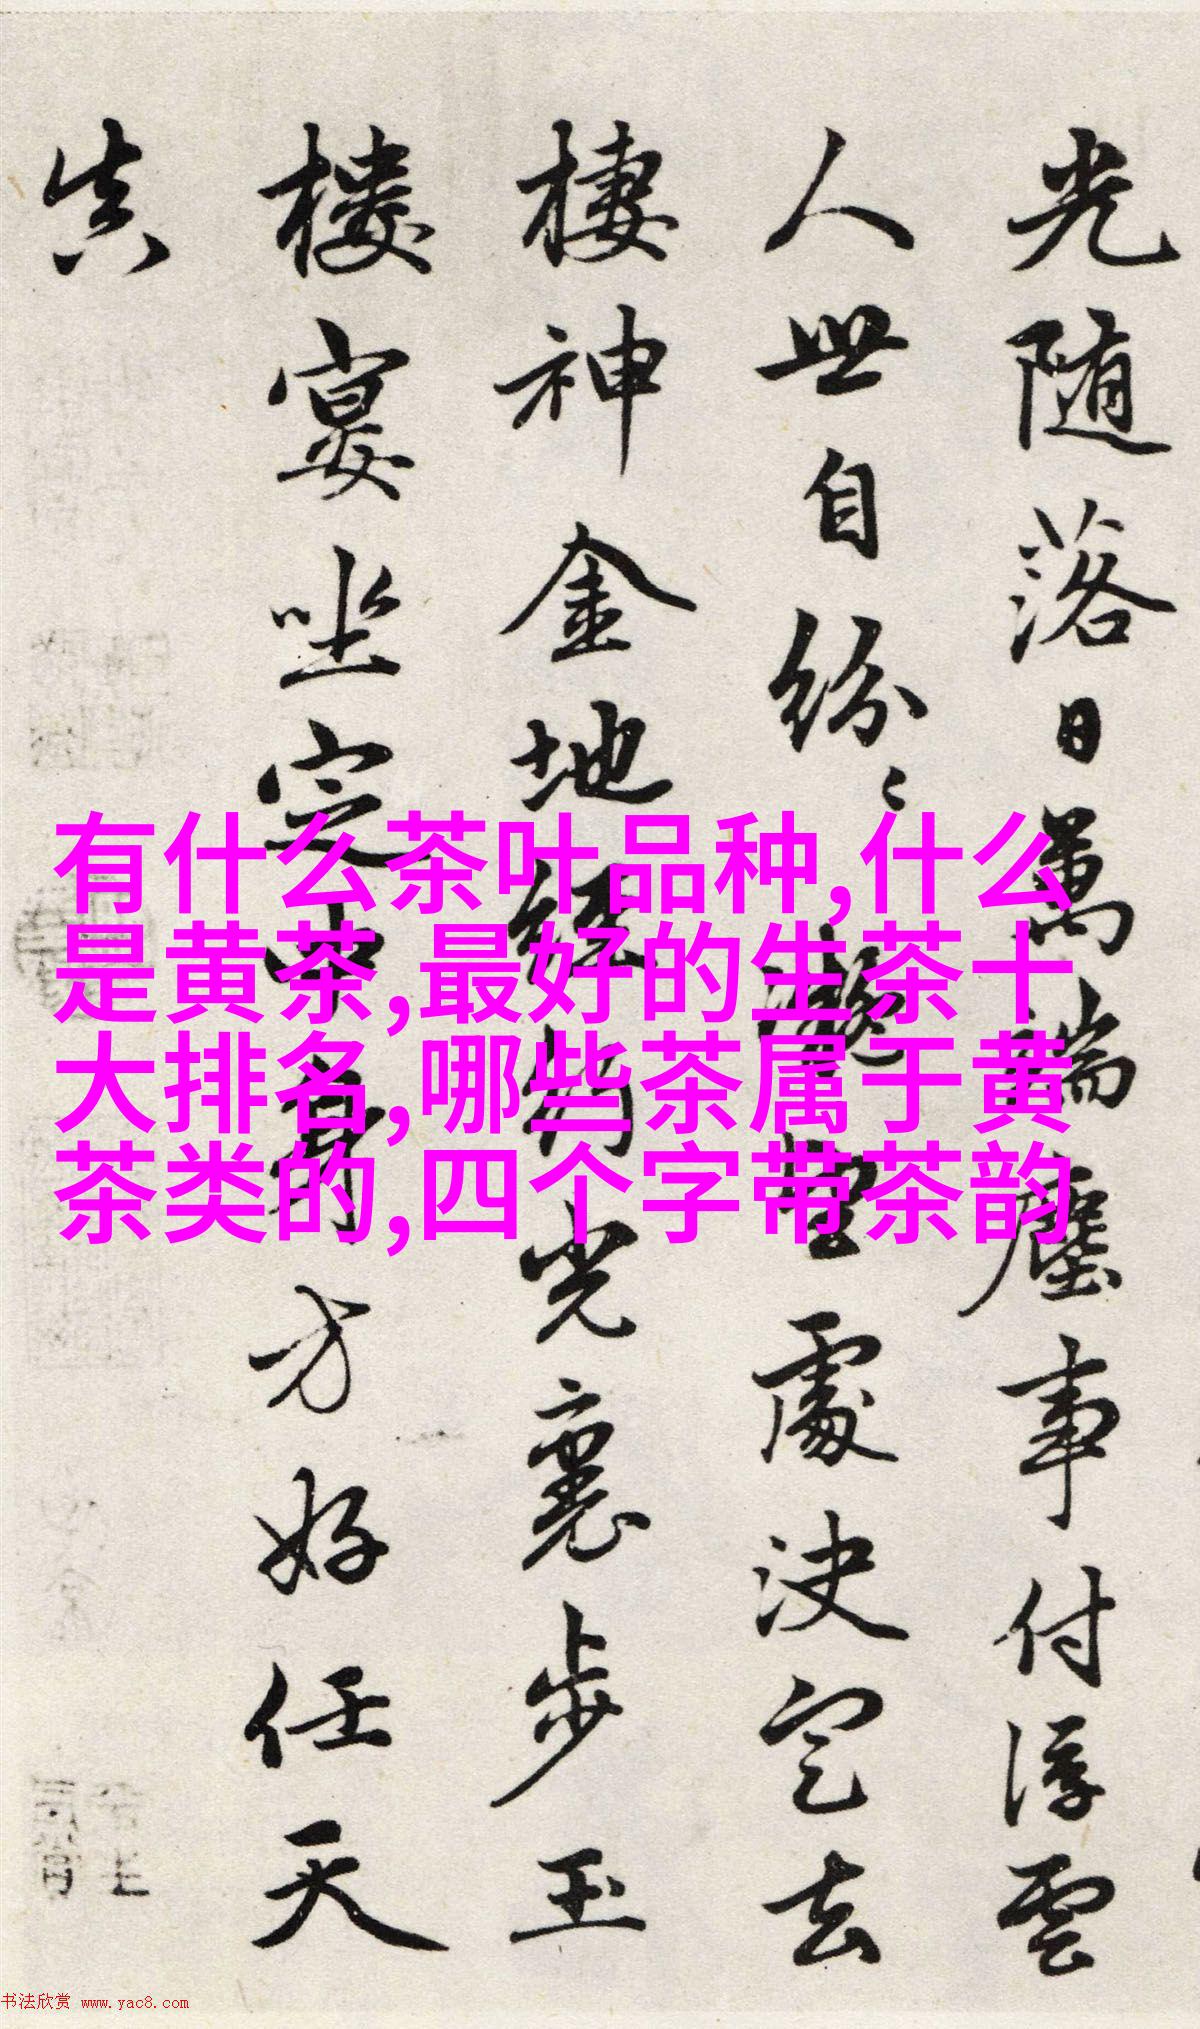 光随落日萬端塵事付浮雲
人世自紛〻凝望處決定去
棲神金地經行光裏步玉
樓宴坐定中身方好任天
真
有什么茶叶品种,什么
是黄茶,最好的生茶十
大排名,哪些茶属于黄
茶类的,四个字带茶韵
书法欣赏 www.yac8.com